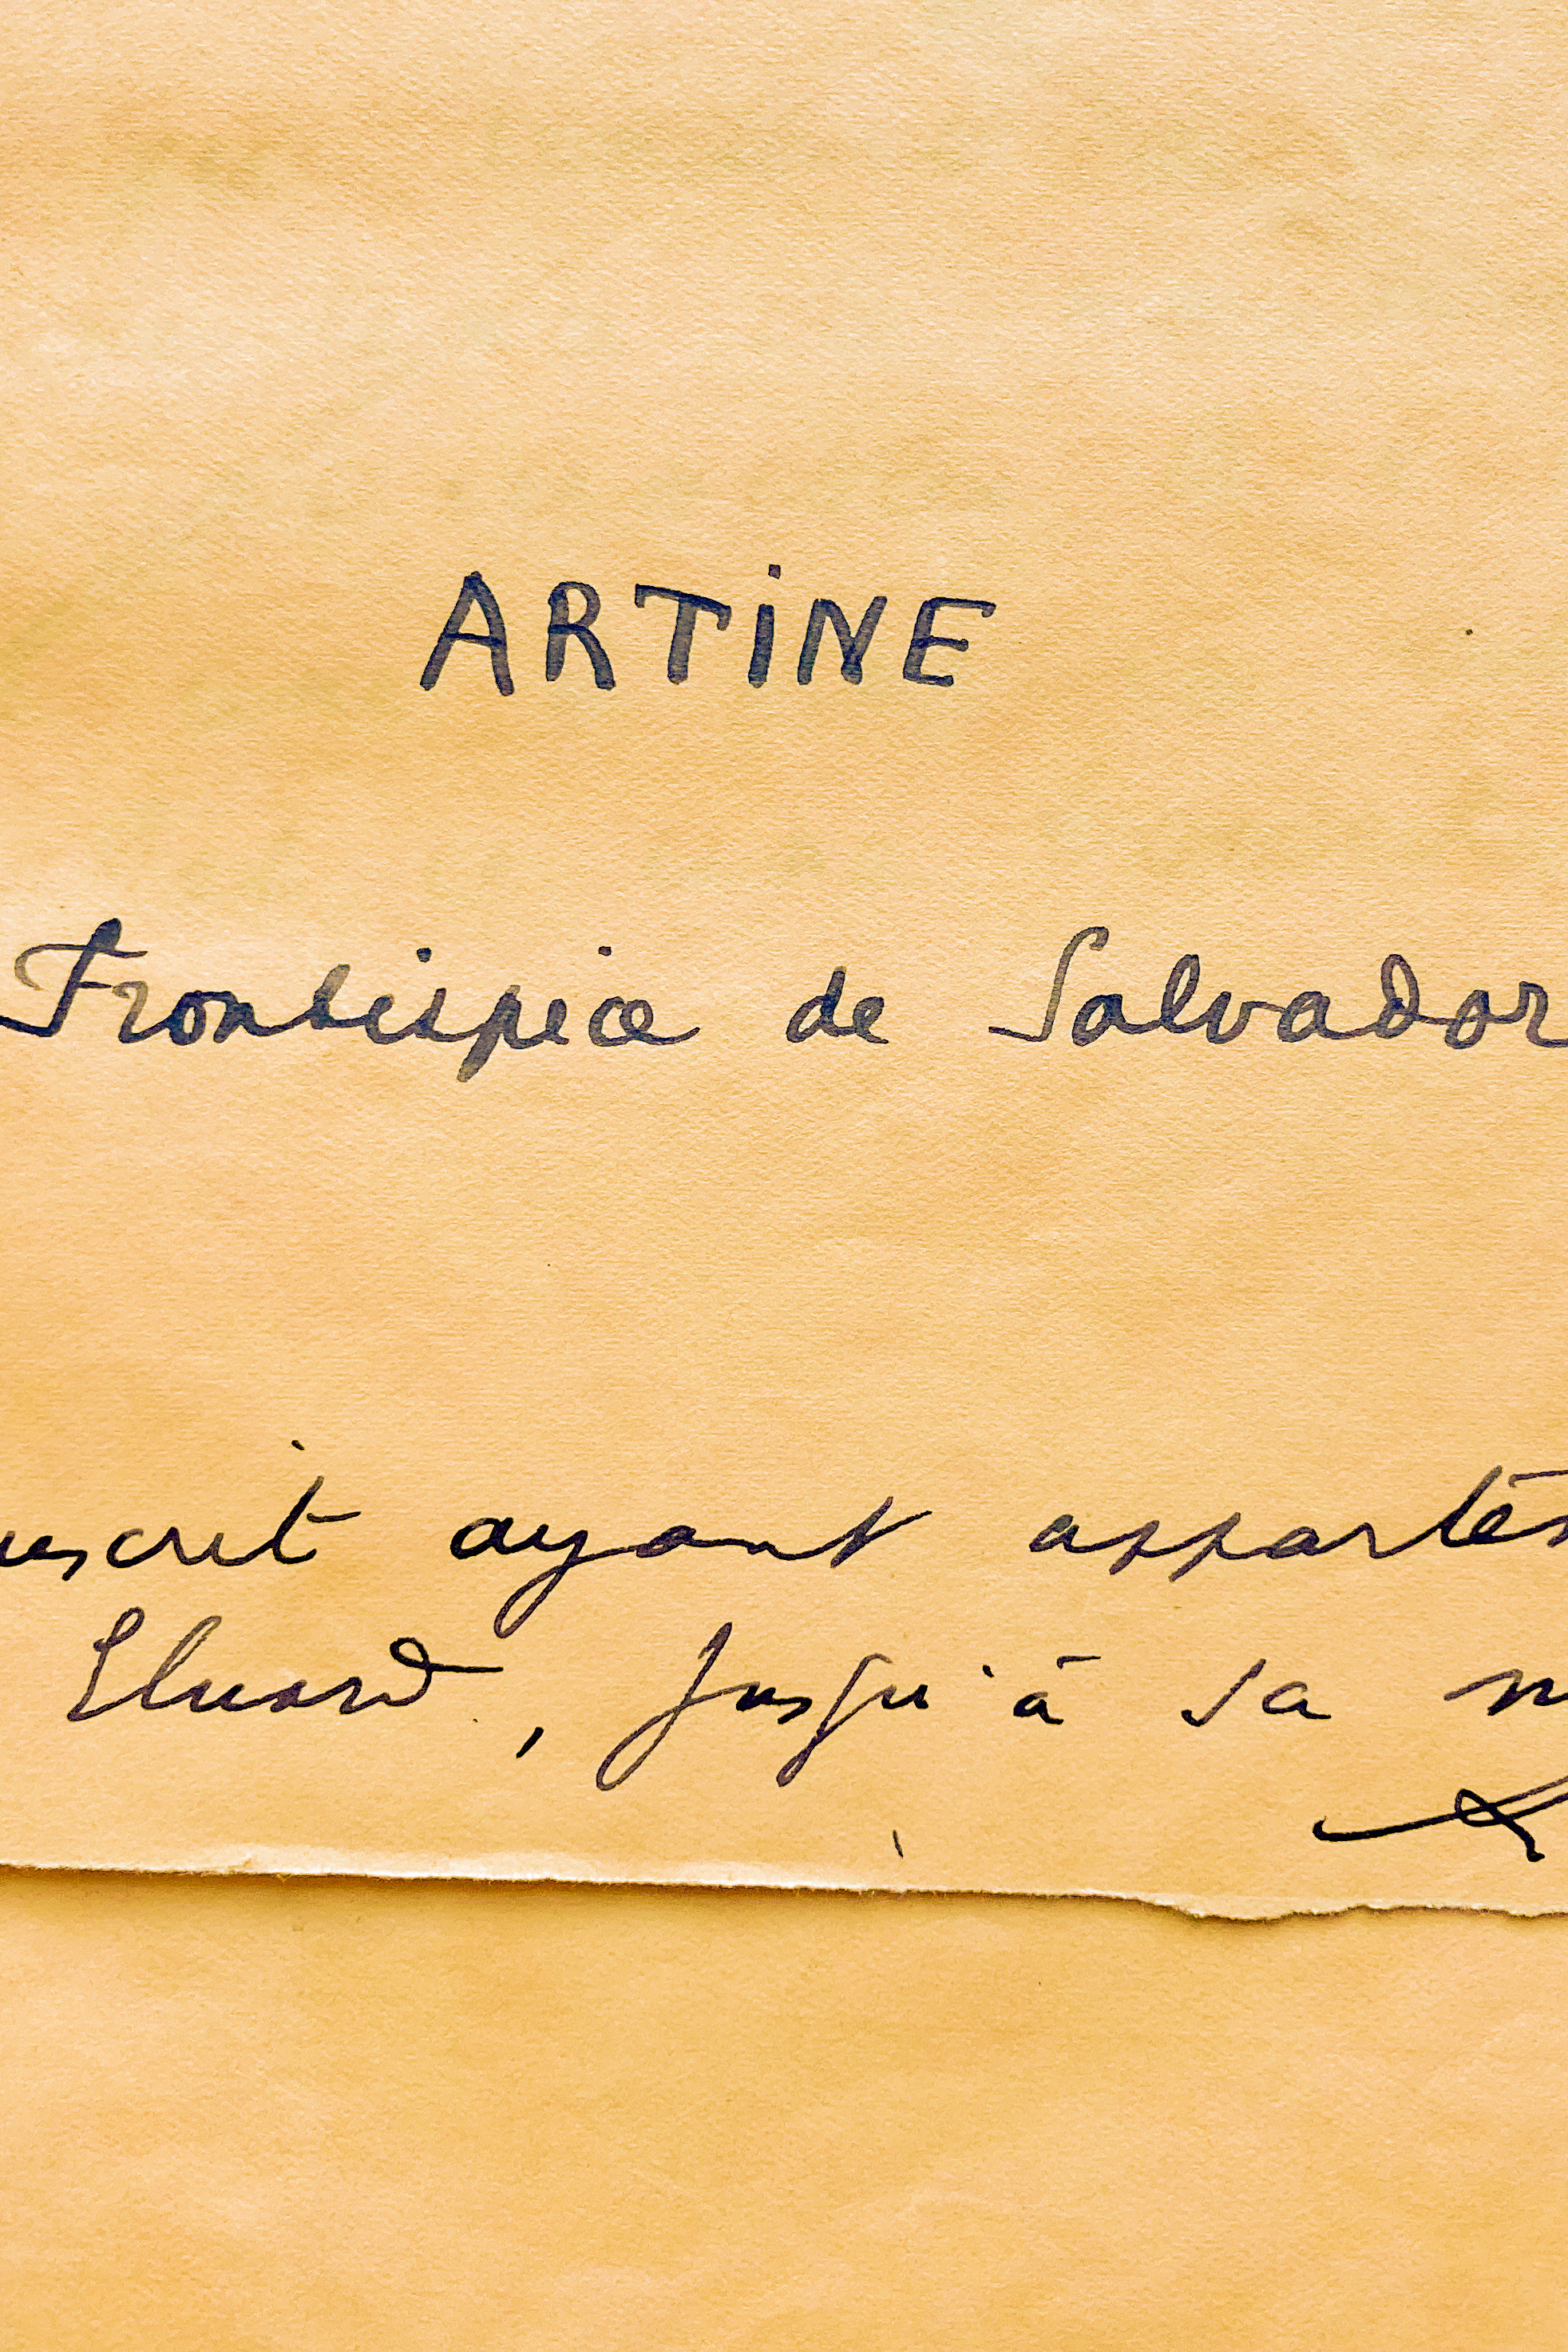 ARTiNE
Frontispice de Salvador
uscrit ayant apparten
Eluard, jusqu'à sa m